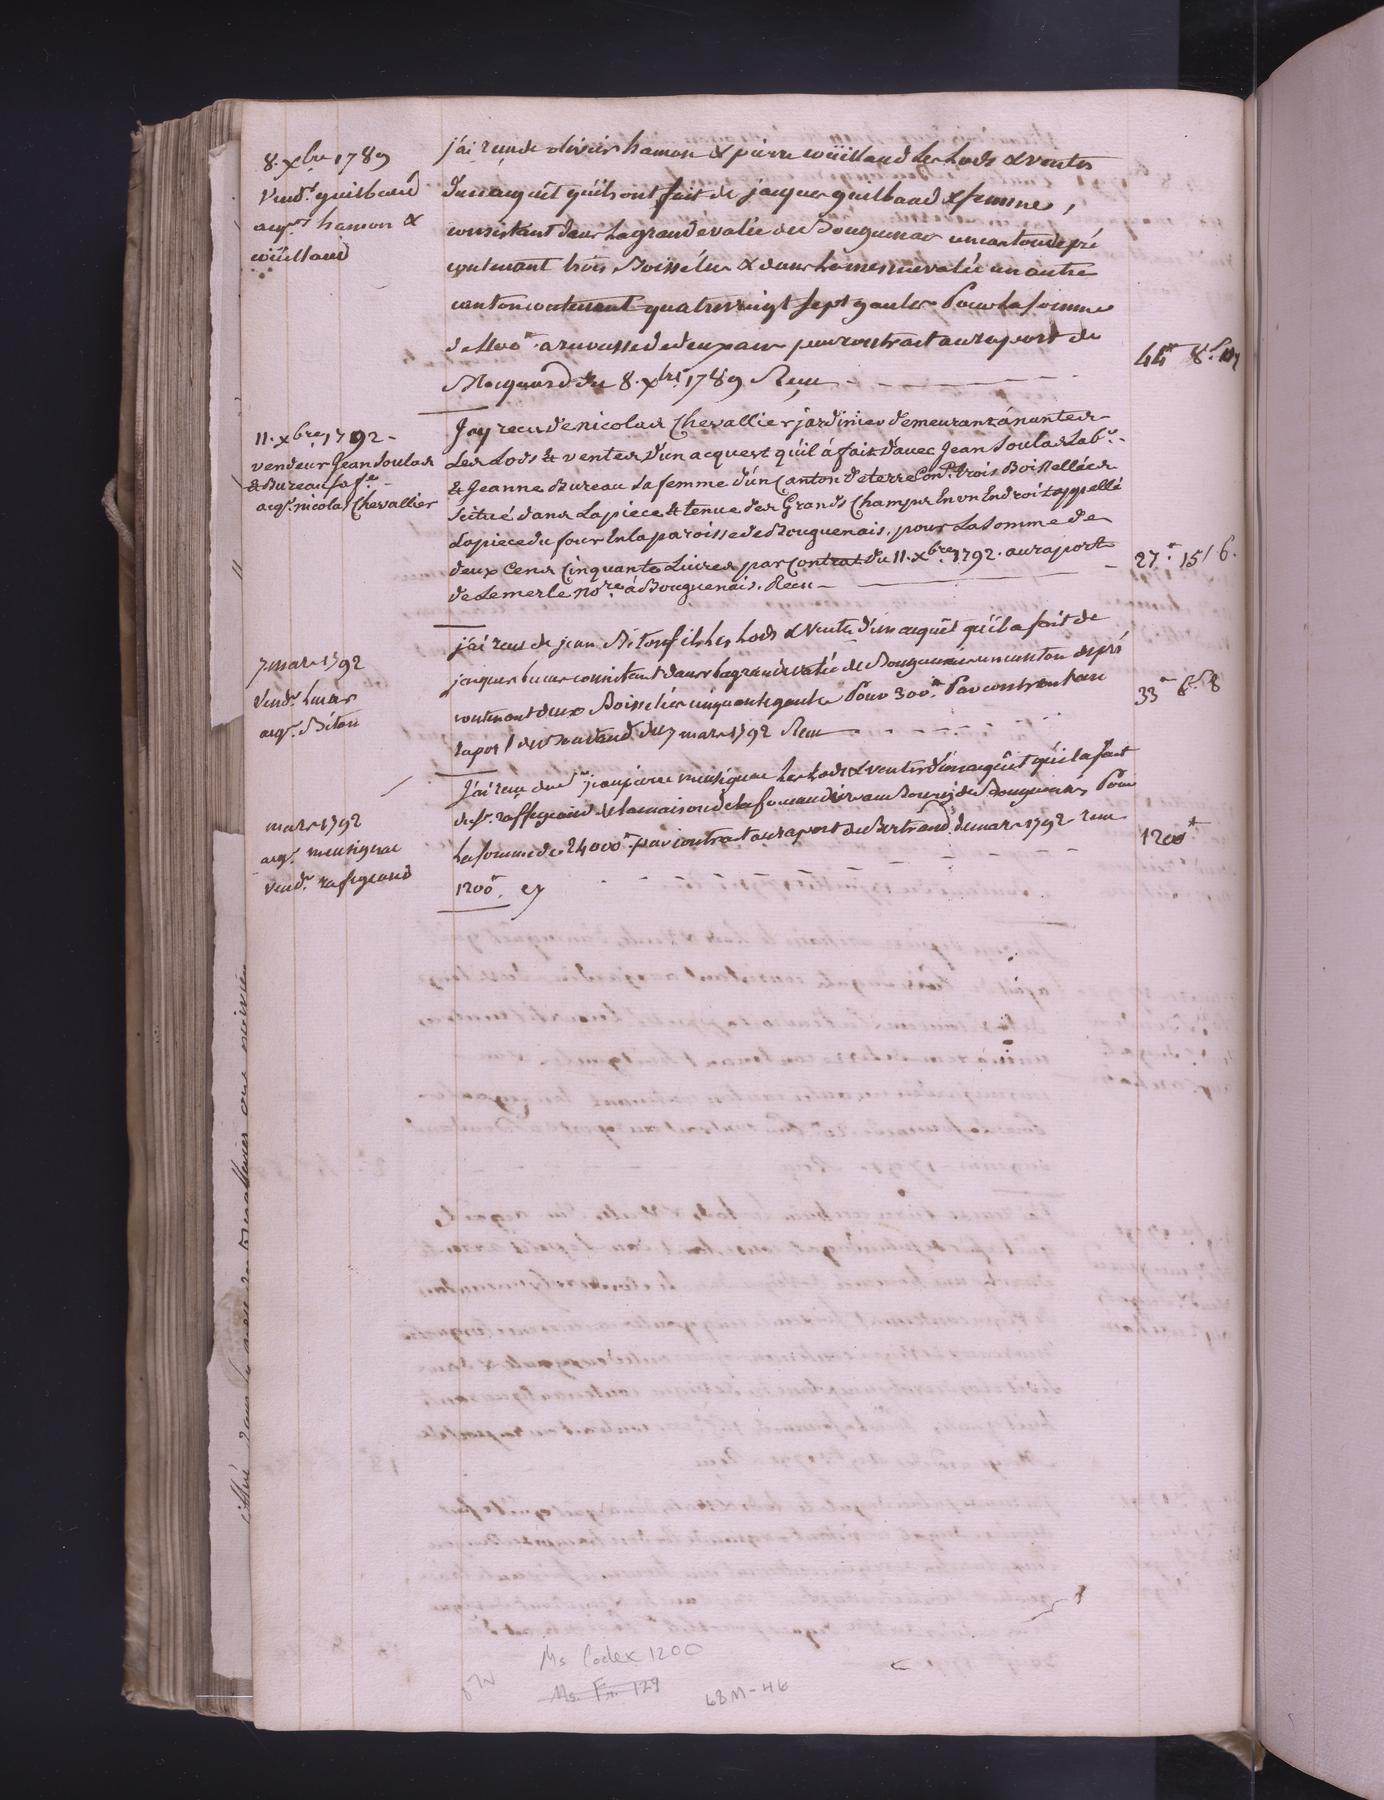 8. xbre 1789
Vendr. guilbaud
aqr. hamon &
coüillaud
j'ai recu de olivier hamon & pierre coüillaud les lods & ventes
d'un aquêt qu'ils ont fait de jacques guilbaud & femme,
consistant dans la grande valée de Bouguenais un canton de pré
contenant trois Boisselées & dans la mesme valée un autre
canton contenant quatrevingt sept gaules Pour la somme
de 400# a ... de deux ans par contrait au raport de
Mocquard du 8. xbre 1789 Recu
44# 8s
11. xbre 1792
vendeur Jean Soulas
& Bureau sa fe.
aqr. nicolas Chevallier
Jay recu de nicolas Chevallier jardinier demeurant à nantes
Les Lods & ventes d'un acquest qu'il à fait d'avec Jean Soulas Labr.
& Jeanne Bureau sa femme d'un Canton de terre Cont. trois Boissellées
scitué dans La piece & tenue des Grands Champs En un Endroit appellé
La piece du four En la paroisse de Bouguenais, pour La Somme de
deux Cens Cinquante Livres par Contrat du 11. xbre 1792. au raport
de Lemerle nore. à Bouguenais. Recu
27# 15s 6.
7 mars 1792
Vendr. lucas
aqr. Biton
j'ai recu de jean Biton fils les Lods & Vente d'un aquêt qu'il a fait de
jacques lucas consistant dans la grande valée de Bouguenais un canton de pré
contenant deux Boisselées cinquante gaules Pour 300# Par contrat au
raport de Bertrand du 7 mars 1792 Recu
33# 6s 8
mars 1792
aqr. meusignac
vendr. rafegeaud
J'ai recu de mr. jean pierre meusignac les Lods & ventes d'un aquêt qu'il a fait
de sr. raffegeaud de la maison de la fouaudiere au Bourg de Bouguenais Pour
la somme de 24000# par contrat au raport de Bertrand de mars 1792 recu
1200# cy
1200#
Ms Codex 1200
Ms. Fr. 129
68M-46